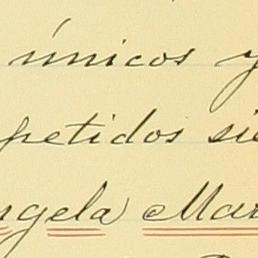 únicos y
petidos sie
ngela Mar